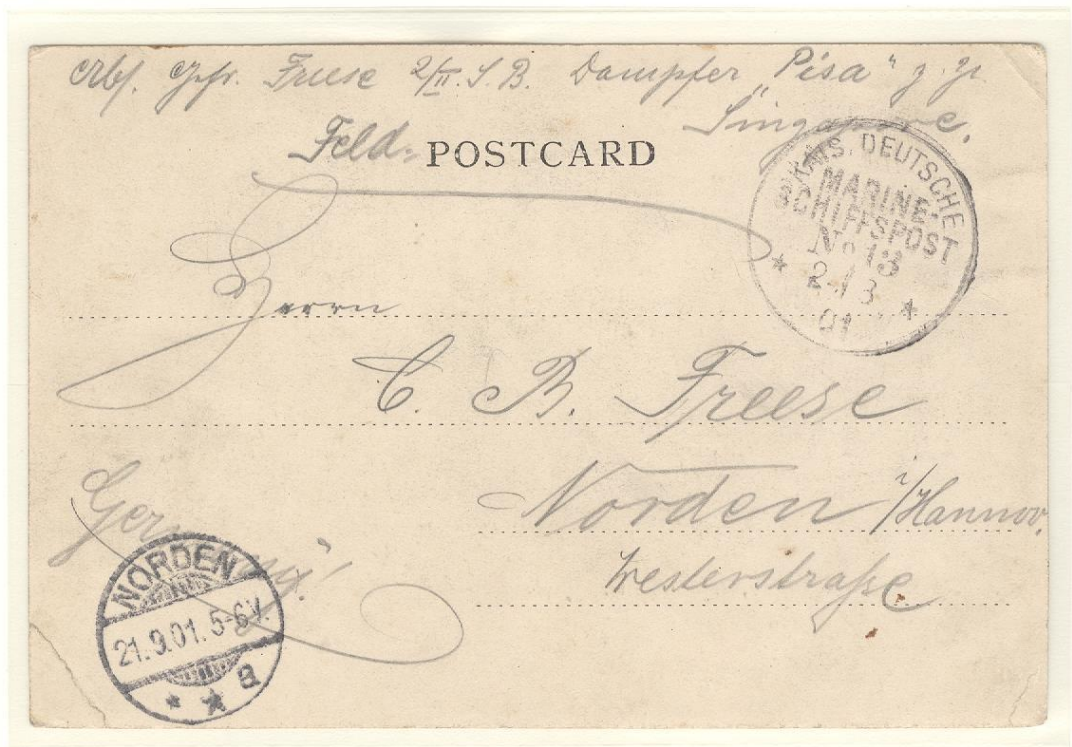 Freese 2/II. S. B. Dampfer "Pisa" z. Zt.
Singapore.
Feld- POSTCARD
KAIS. DEUTSCHE
MARINE-
SCHIFFSPOST
No 13
3
01
Herrn
C. B. Freese
Norden i/Hannov.
Germany!
Westerstraße
NORDEN
21.9.01. 5-6V.
* * a